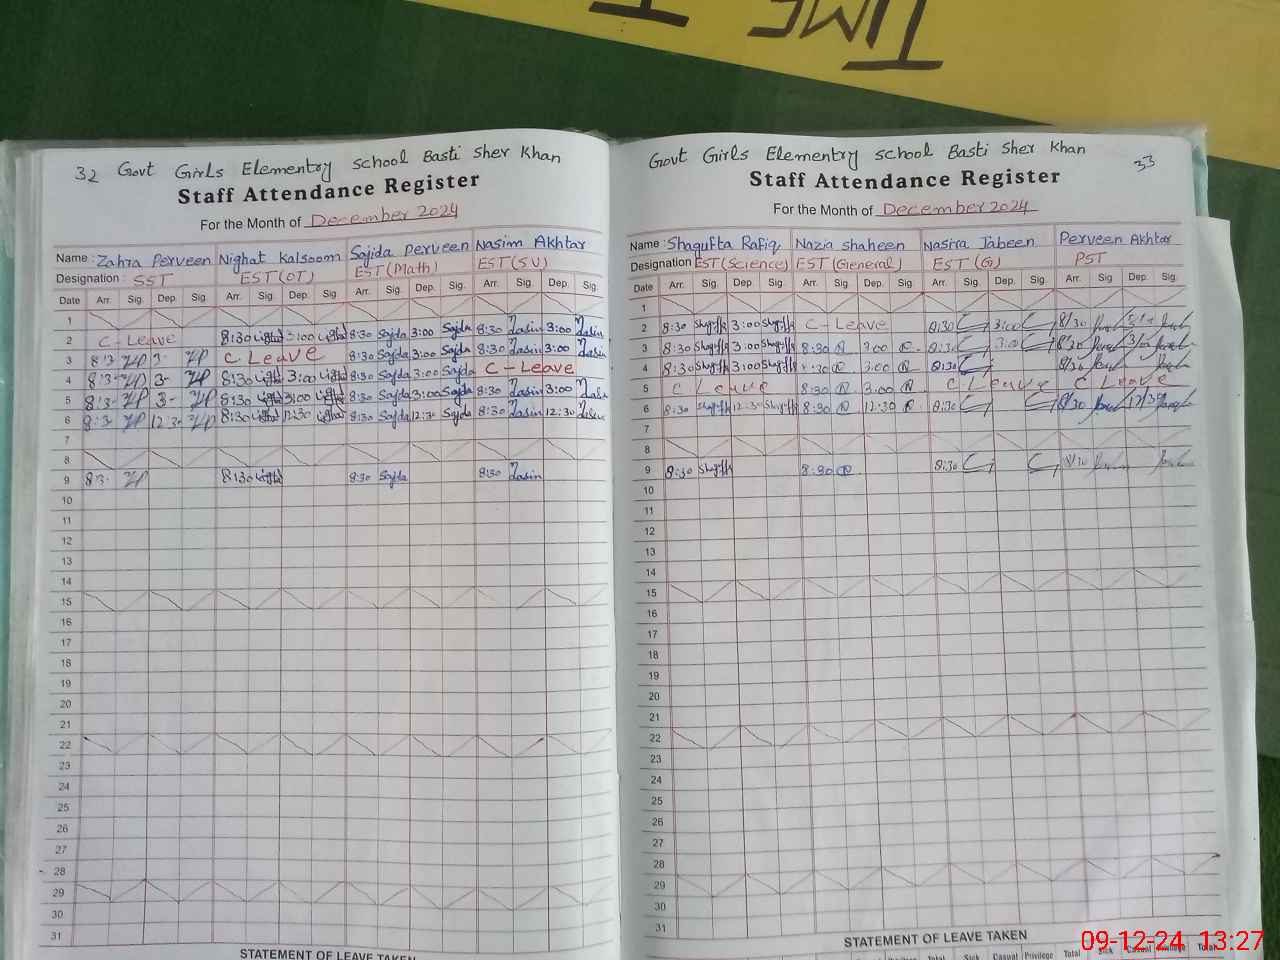 TIME T
32 Govt Girls Elementry School Basti Sher Khan
Staff Attendance Register
For the Month of December 2024
Name: Zahra Perveen Nighat Kalsoom Sajida Perveen Nasim Akhtar
Designation: SST EST(OT) EST(Math) EST(S.V)
Date Arr. Sig. Dep. Sig. Arr. Sig. Dep. Sig. Arr. Sig. Dep. Sig. Arr. Sig. Dep. Sig.
1
2 C-Leave 8:30 3:00 8:30 Sajda 3:00 Sajda 8:30 3:00
3 8:3- ZP 3- ZP C Leave 8:30 Sajda 3:00 Sajda 8:30 3:00
4 8:3- ZP 3- ZP 8:30 3:00 8:30 Sajda 3:00 Sajda C-Leave
5 8:3- ZP 3- ZP 8:30 3:00 8:30 Sajda 3:00 Sajda 8:30 3:00
6 8:3- ZP 12:30 ZP 8:30 12:30 8:30 Sajda 12:30 Sajda 8:30 12:30
7
8
9 8:3- ZP 8:30 8:30 Sajda 8:30
10
11
12
13
14
15
16
17
18
19
20
21
22
23
24
25
26
27
28
29
30
31
STATEMENT OF LEAVE TAKEN
Govt Girls Elementry School Basti Sher Khan 33
Staff Attendance Register
For the Month of December 2024
Name: Shagufta Rafiq Nazia Shaheen Nasira Jabeen Perveen Akhtar
Designation EST(Science) EST(General) EST(G) PST
Date Arr. Sig. Dep. Sig. Arr. Sig. Dep. Sig. Arr. Sig. Dep. Sig. Arr. Sig. Dep. Sig.
1
2 8:30 3:00 C-Leave 8:30 3:00 8/30
3 8:30 3:00 8:30 3:00 8:30 3:00 8/30
4 8:30 3:00 8:30 3:00 8:30 8/30
5 C Leave 8:30 3:00 C Leave C Leave
6 8:30 12:30 8:30 12:30 8:30 8/30 12/30
7
8
9 8:30 8:30 8:30 8/30
10
11
12
13
14
15
16
17
18
19
20
21
22
23
24
25
26
27
28
29
30
31
STATEMENT OF LEAVE TAKEN
Total Sick Casual Privilege Total Sick Casual Privilege Total
09-12-24 13:27